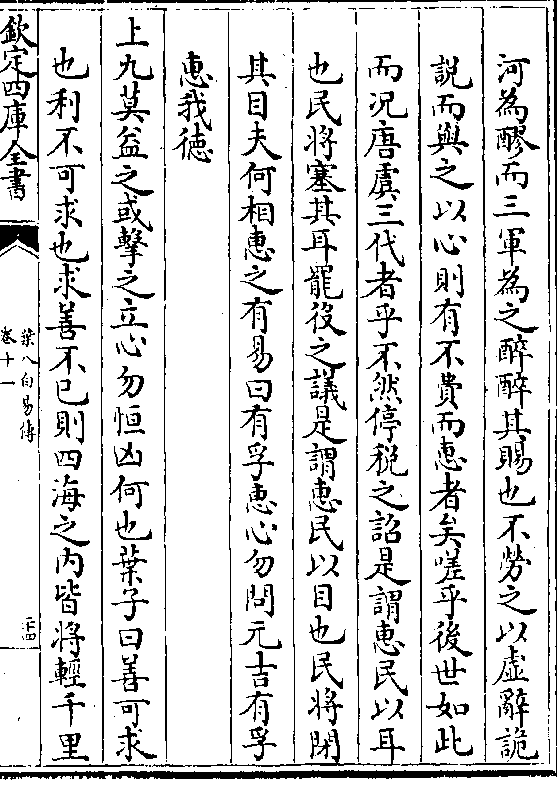 河為醪而三軍為之醉醉其賜也不勞之以虛辭詭
說而與之以心則有不費而惠者矣嗟乎後世如此
而況唐虞三代者乎不然停税之詔是謂惠民以耳
也民將塞其耳罷役之議是謂惠民以目也民將閉
其目夫何相惠之有易曰有孚惠心勿問元吉有孚
惠我德
上九莫益之或擊之立心勿恒凶何也葉子曰善可求
也利不可求也求善不已則四海之内皆將輕千里
欽定四庫全書
葉八白易傳
卷十一
二十四